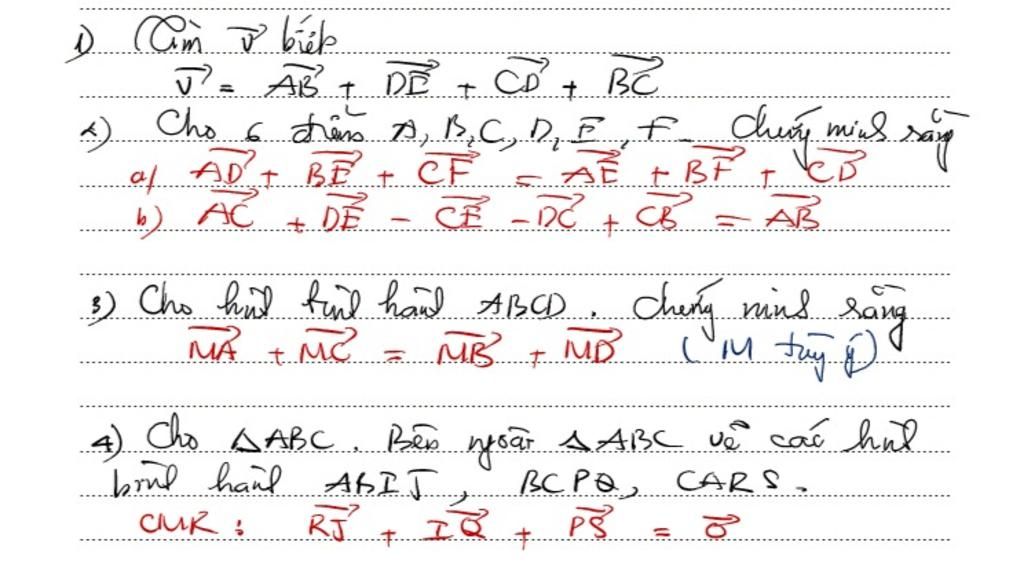 1) Tìm v⃗ biết
v⃗ = AB⃗ + DE⃗ + CD⃗ + BC⃗
2) Cho 6 điểm A, B, C, D, E, F. Chứng minh rằng
a/ AD⃗ + BE⃗ + CF⃗ = AE⃗ + BF⃗ + CD⃗
b) AC⃗ + DE⃗ - CE⃗ - DC⃗ + CB⃗ = AB⃗
3) Cho hình bình hành ABCD. Chứng minh rằng
MA⃗ + MC⃗ = MB⃗ + MD⃗ (M tùy ý)
4) Cho ΔABC. Bên ngoài ΔABC vẽ các hình
bình hành ABIJ, BCPQ, CARS.
CMR: RJ⃗ + IQ⃗ + PS⃗ = O⃗